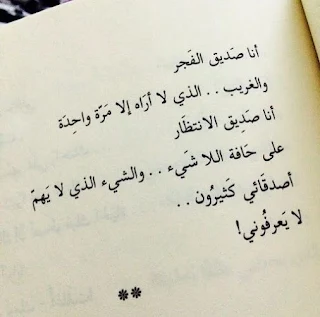 أنا صَديق الفَجر
والغريب . . الذي لا أرَاه إلا مَرّة واحِدَة
أنا صَدِيق الانتظَار
على حَافة اللا شَيء . . والشيء الذي لا يَهمّ
أصدقَائي كَثيرُون . .
لا يَعرفُوني!
**